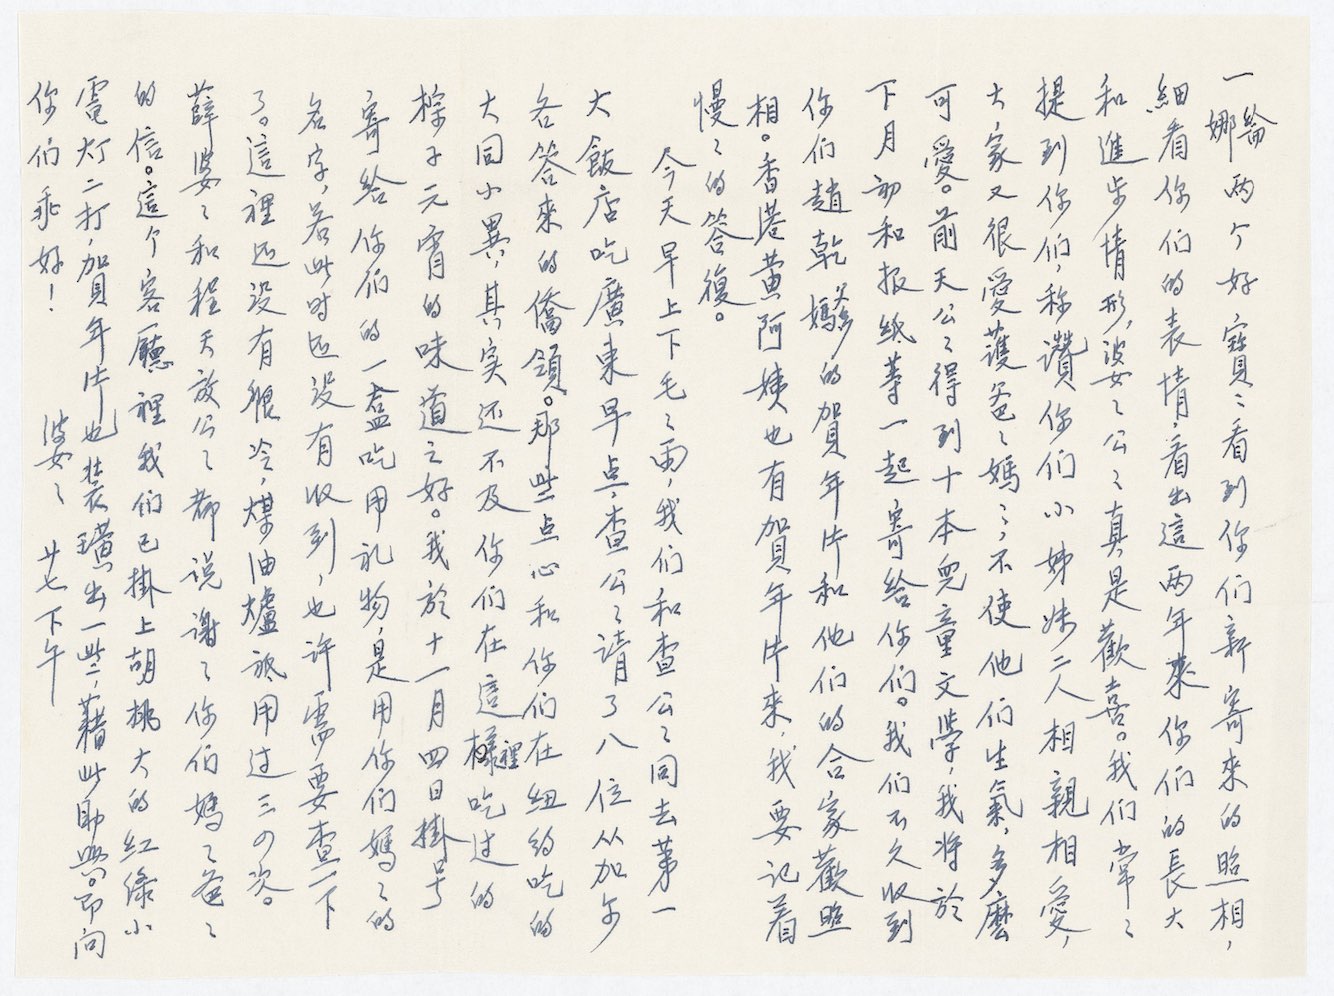 一綸娜两个好寶〻看到你们新寄來的照相，
細看你们的表情，看出這两年來你们的長大
和進步情形，婆〻公〻真是歡喜。我们常〻
提到你们，称讚你们小姊妹二人相親相愛，
大家又很愛護爸〻媽〻，不使他们生氣，多麼
可愛。前天公〻得到十本兒童文學，我将於
下月初和报紙等一起寄給你们。我们不久收到
你们趙乾爹媽的賀年片和他们的合家歡照
相。香港黄阿姨也有賀年片來，我要记着
慢〻的答復。
今天早上下毛〻雨，我们和查公〻同去第一
大飯店吃廣東早点，查公〻請了八位从加尔
各答來的僑領。那些点心和你们在纽约吃的
大同小異，其实还不及你们在這裡吃过的
粽子元宵的味道之好。我於十一月四日掛号
寄給你们的一盒吃用礼物，是用你们媽〻的
名字，若此时还没有收到，也许需要查一下
了。這裡还没有很冷，煤油爐祗用过三四次。
薛婆〻和程天放公〻都说謝〻你们媽〻爸〻
的信。這个客廳裡我们已掛上胡桃大的红綠小
電灯二打，賀年片也装璜出一些，藉此助興。即问
你们乖好！
婆〻 廿七下午